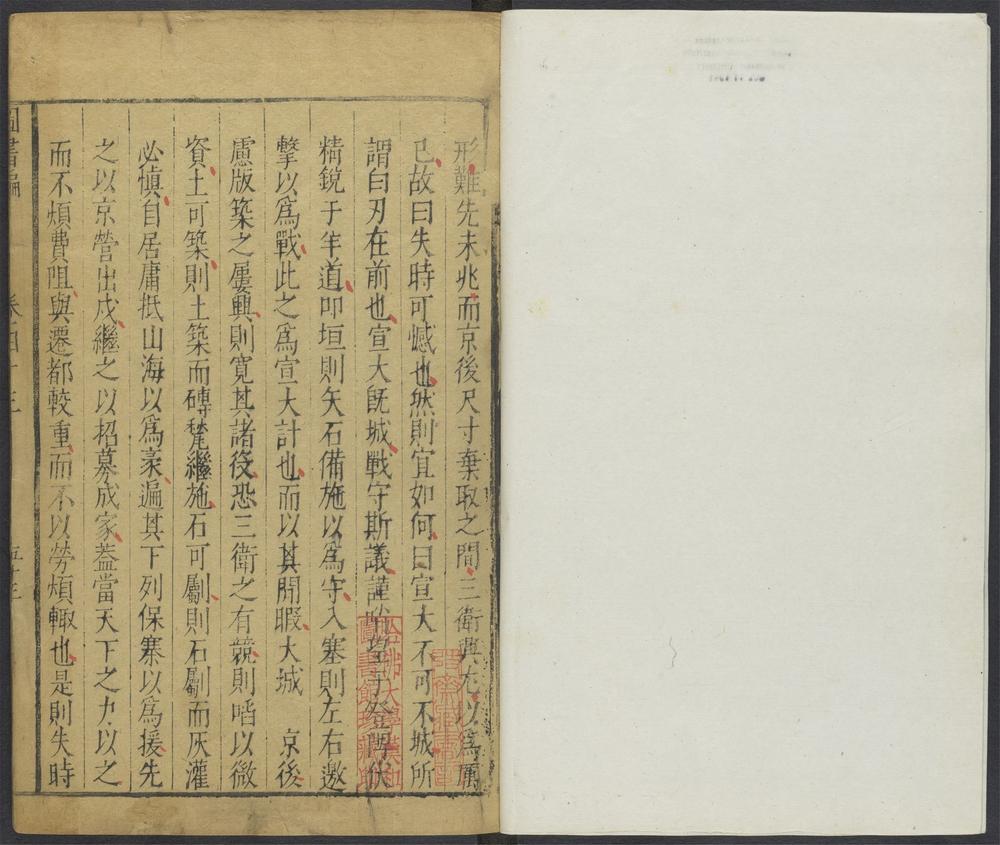 形難先未兆而京後尺寸棄取之間三衛與尤以為厲
已故曰失時可憾也然則宜如何曰宣大不可不城所
謂白刃在前也宣大既城戰守斯議謹哨望于登陴伏
精銳于牟道叩垣則矢石備施以為守入塞則左右邀
擊以為戰此之為宣大計也而以其閒暇大城 京後
慮版築之屢興則寬其諸役恐三衛之有競則啗以微
資土可築則土築而磚甃繼施石可劚則石劚而灰灌
必慎自居庸抵山海以為豪遍其下列保寨以為援先
之以京營出戍繼之以招募成家葢當天下之力以之
而不煩費阻與遷都較重而不以勞煩輙也是則失時
圖書編 卷四十三 五十三
哈佛大學漢和
圖書館珍藏印